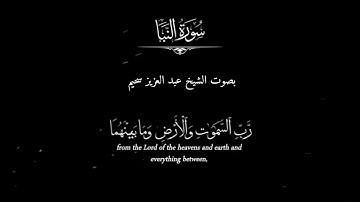 سُورَةُ النَّبَأ
بصوت الشيخ عبد العزيز سحيم
رَّبِّ ٱلسَّمَٰوَٰتِ وَٱلْأَرْضِ وَمَا بَيْنَهُمَا
from the Lord of the heavens and earth and
everything between,